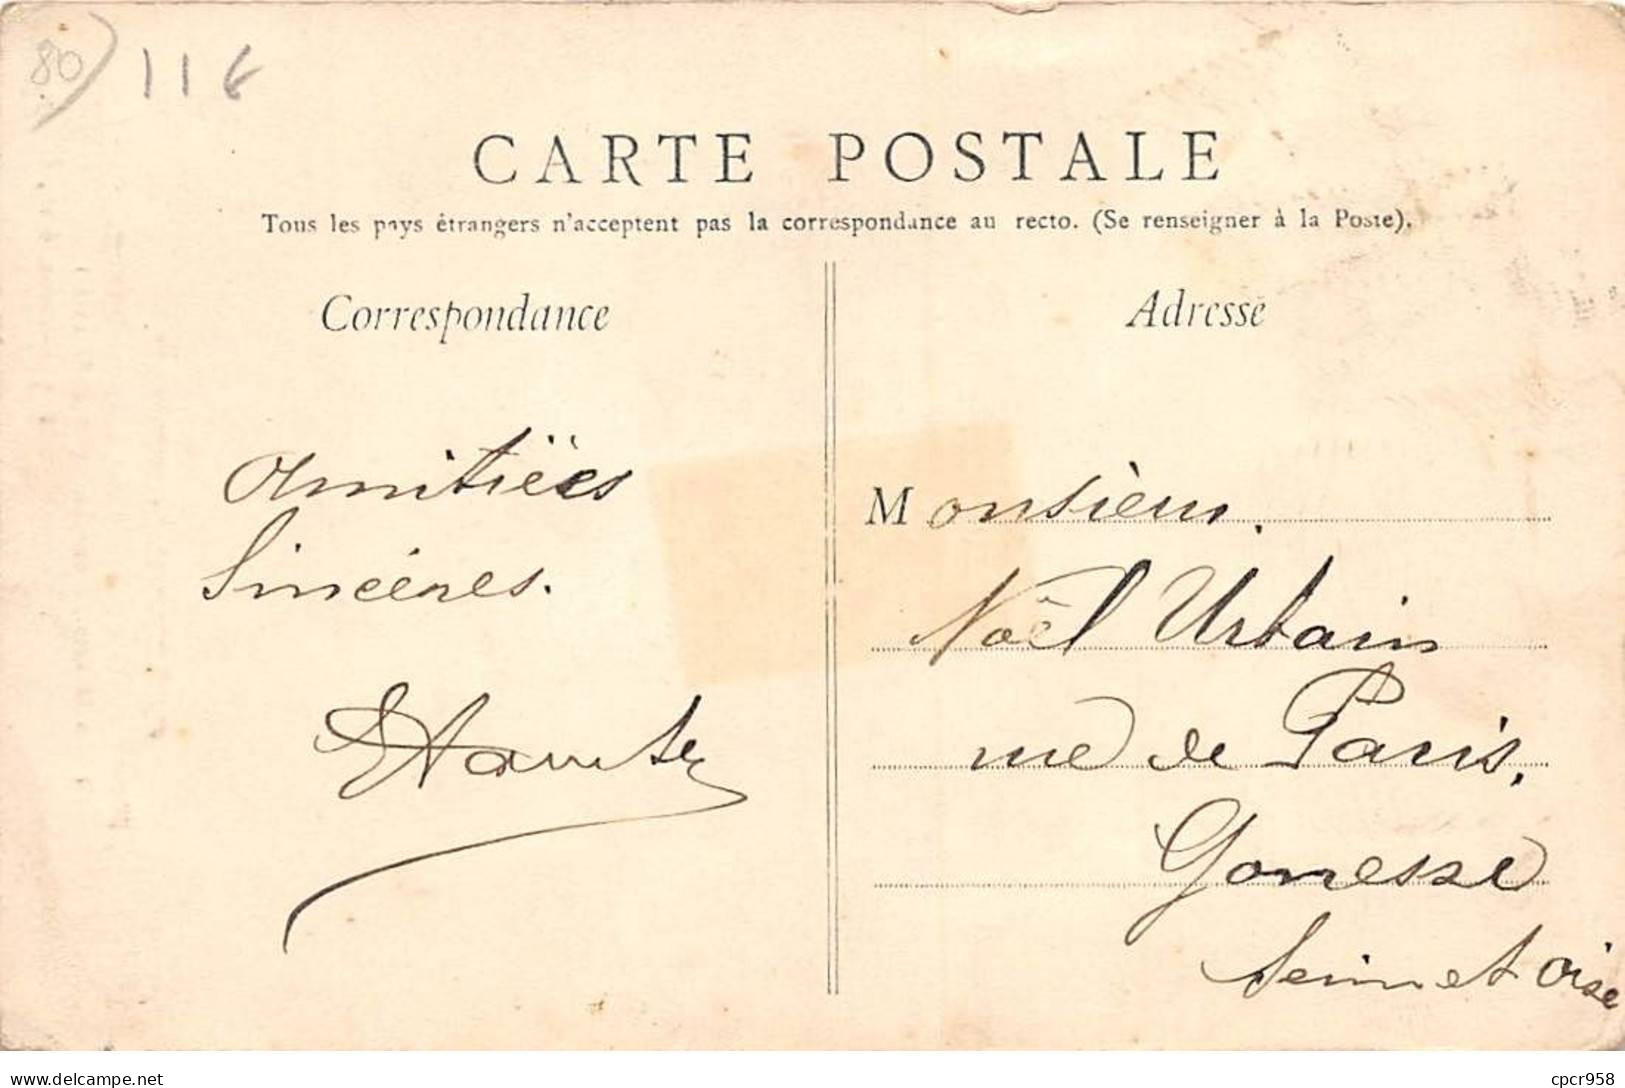 80 11€
CARTE POSTALE
Tous les pays étrangers n'acceptent pas la correspondance au recto. (Se renseigner à la Poste).
Correspondance
Adresse
Amitiées
Sincères.
Monsieur.
Noël Urbain
rue de Paris,
Gonesse
Seine et Oise
delcampe.net
cpcr958